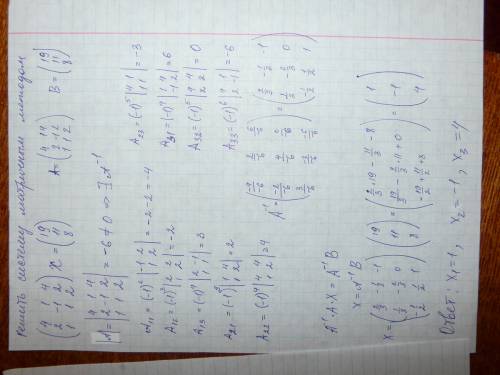 Решить систему матричным методом
(4 1 4; 2 -1 2; 1 1 2) X = (19; 11; 8)   A = (4 1 4; 2 -1 2; 1 1 2)   B = (19; 11; 8)
|A| = |4 1 4; 2 -1 2; 1 1 2| = -6 ≠ 0 ⇒ ∃ A⁻¹
A₁₁ = (-1)² |-1 2; 1 2| = -2-2 = -4   A₂₃ = (-1)⁵ |4 1; 1 1| = -3
A₁₂ = (-1)³ |2 2; 1 2| = -2   A₃₁ = (-1)⁴ |1 4; -1 2| = 6
A₁₃ = (-1)⁴ |2 -1; 1 1| = 3   A₃₂ = (-1)⁵ |4 4; 2 2| = 0
A₂₁ = (-1)³ |1 4; 1 2| = 2   A₃₃ = (-1)⁶ |4 1; 2 -1| = -6
A₂₂ = (-1)⁴ |4 4; 1 2| = 4
A⁻¹ = (-4/-6 2/-6 6/-6; -2/-6 4/-6 0/-6; 3/-6 -3/-6 -6/-6) = (2/3 -1/3 -1; 1/3 -2/3 0; -1/2 1/2 1)
A⁻¹·A·X = A⁻¹B
X = A⁻¹B
X = (2/3 -1/3 -1; 1/3 -2/3 0; -1/2 1/2 1) (19; 11; 8) = (2/3·19 - 11/3 - 8; 19/3 - 2/3·11 + 0; -19/2 + 11/2 + 8) = (1; -1; 4)
Ответ: x₁=1, x₂=-1, x₃=4